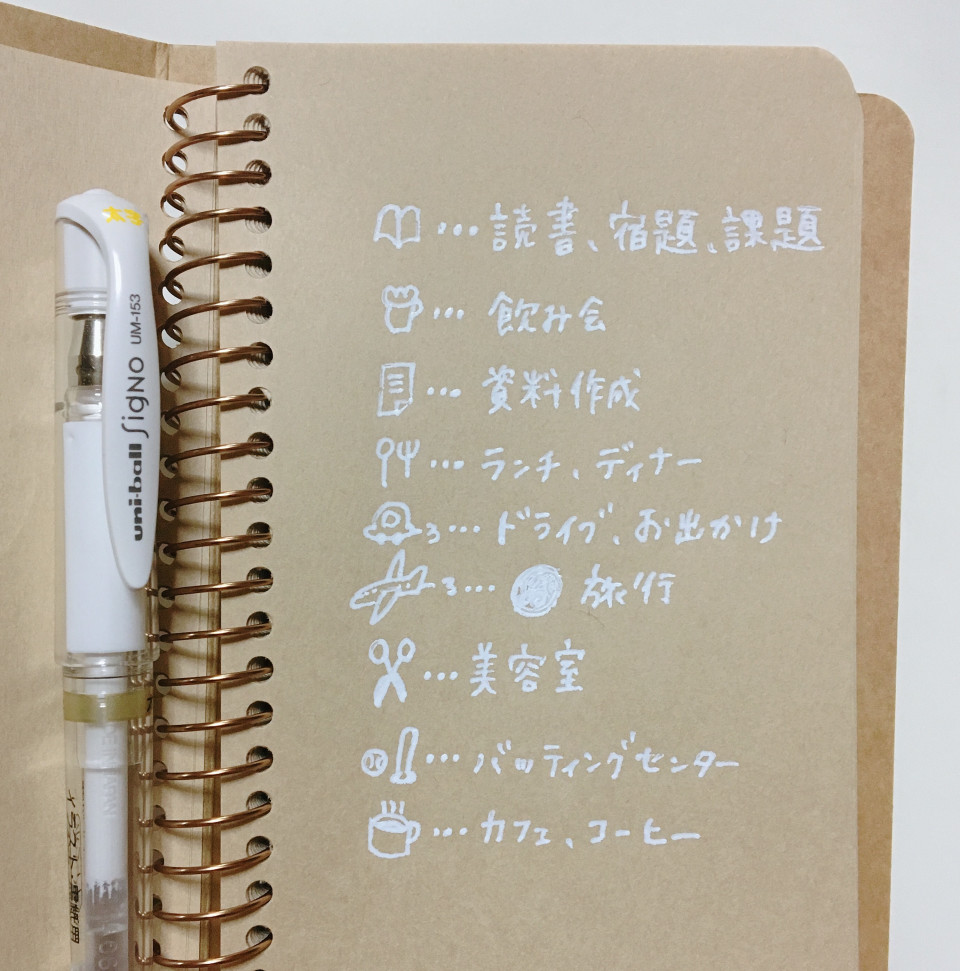 …読書、宿題、課題
…飲み会
…資料作成
…ランチ、ディナー
…ドライブ、お出かけ
…旅行
…美容室
…バッティングセンター
…カフェ、コーヒー
太字
uni-ball Signo UM-153